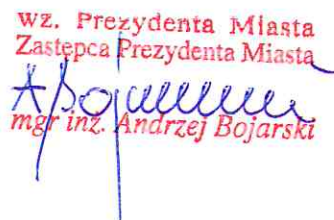 wz. Prezydenta Miasta
Zastępca Prezydenta Miasta
A Bojarski
mgr inż. Andrzej Bojarski